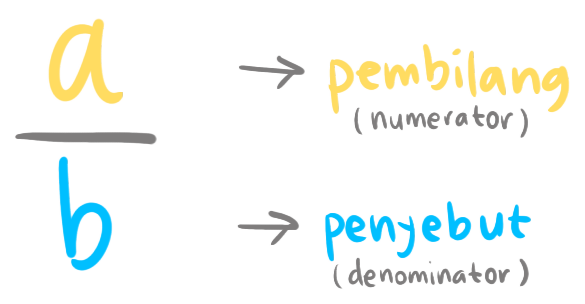 a → pembilang
(numerator)
b → penyebut
(denominator)